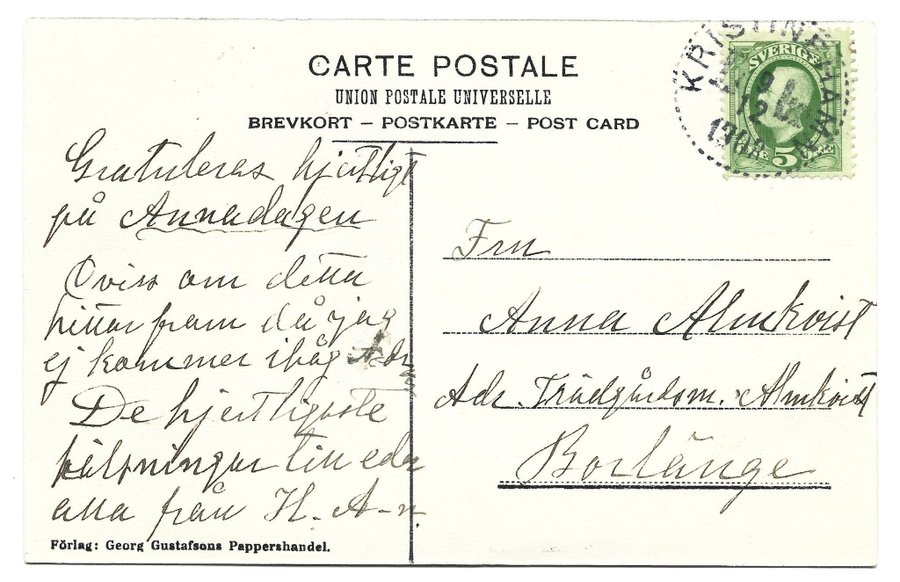 CARTE POSTALE
UNION POSTALE UNIVERSELLE
BREVKORT – POSTKARTE – POST CARD
KRISTINEHAMN
9
12
1908
SVERIGE
5
Gratuleras hjertligt
på Annadagen
Oviss om detta
hittar fram då jag
ej kommer ihåg Adr
De hjertligaste
hälsningar till eder
alla från H. A-n.
Fru
Anna Almkvist
Adr. Trädgårdsm. Almkvist
Borlänge
Förlag: Georg Gustafsons Pappershandel.